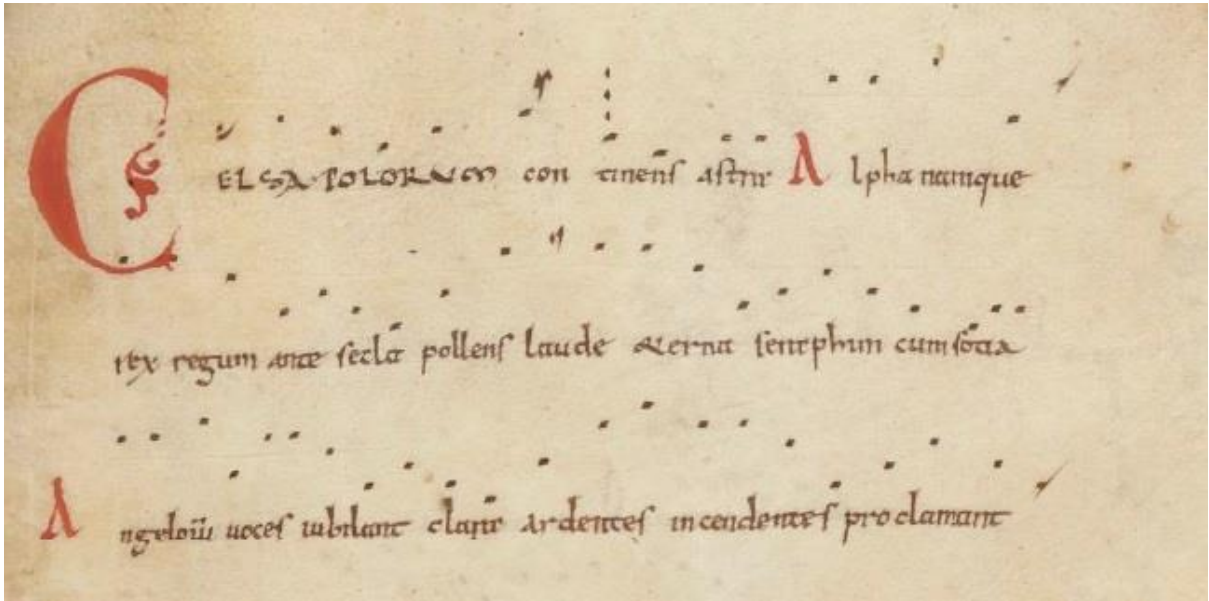 CELSA POLORUM con tinens astra Alpha namque
rex regum ante secla pollens laude æterna seraphim cum socia
Angeloru voces iubilant clara ardentes incendentes proclamant